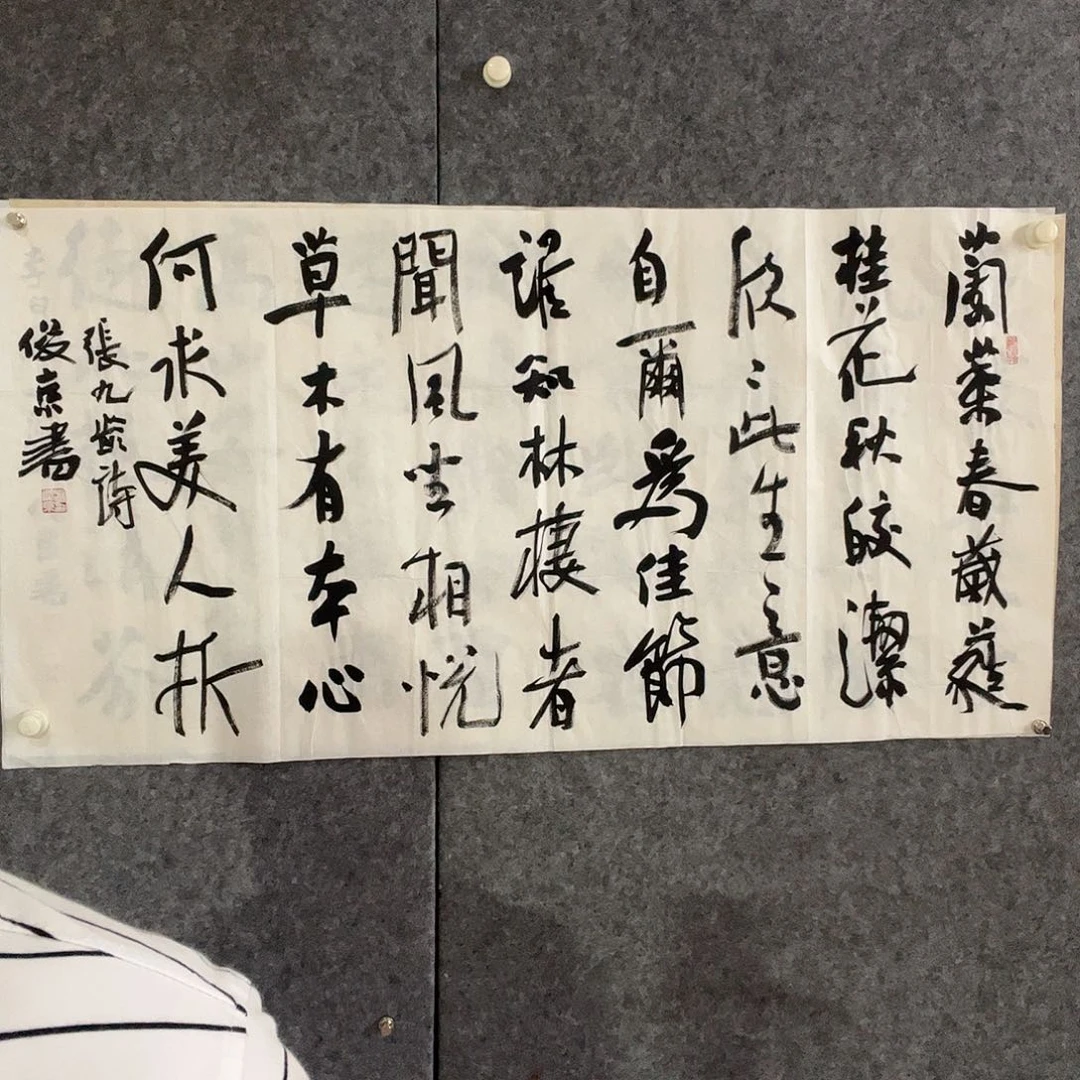 蘭葉春葳蕤
桂花秋皎潔
欣〻此生意
自爾爲佳節
誰知林棲者
聞風坐相悅
草木有本心
何求美人折
張九齡詩
俊京書